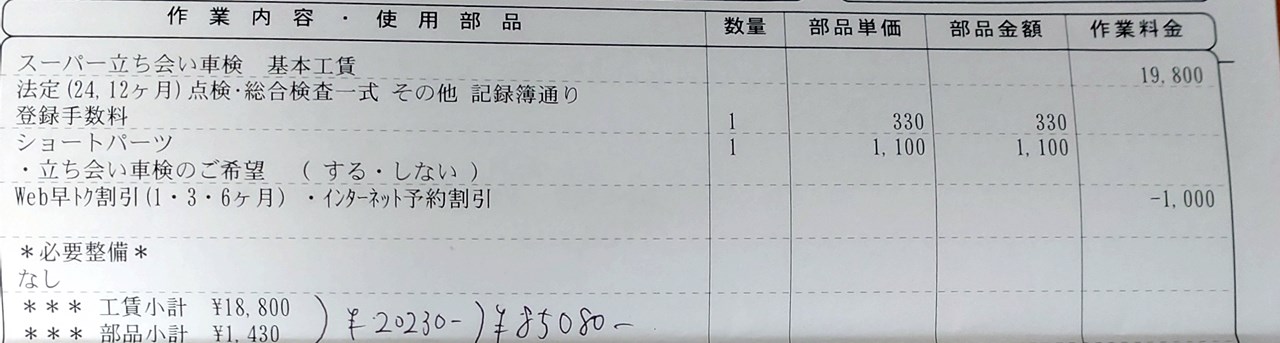 作業内容・使用部品 数量 部品単価 部品金額 作業料金
スーパー立ち会い車検 基本工賃 19,800
法定(24,12ヶ月)点検・総合検査一式 その他 記録簿通り
登録手数料 1 330 330
ショートパーツ 1 1,100 1,100
・立ち会い車検のご希望 ( する・しない )
Web早トク割引(1・3・6ヶ月) ・インターネット予約割引 -1,000
*必要整備*
なし
*** 工賃小計 ¥18,800
*** 部品小計 ¥1,430
) ¥20230- ) ¥85080-